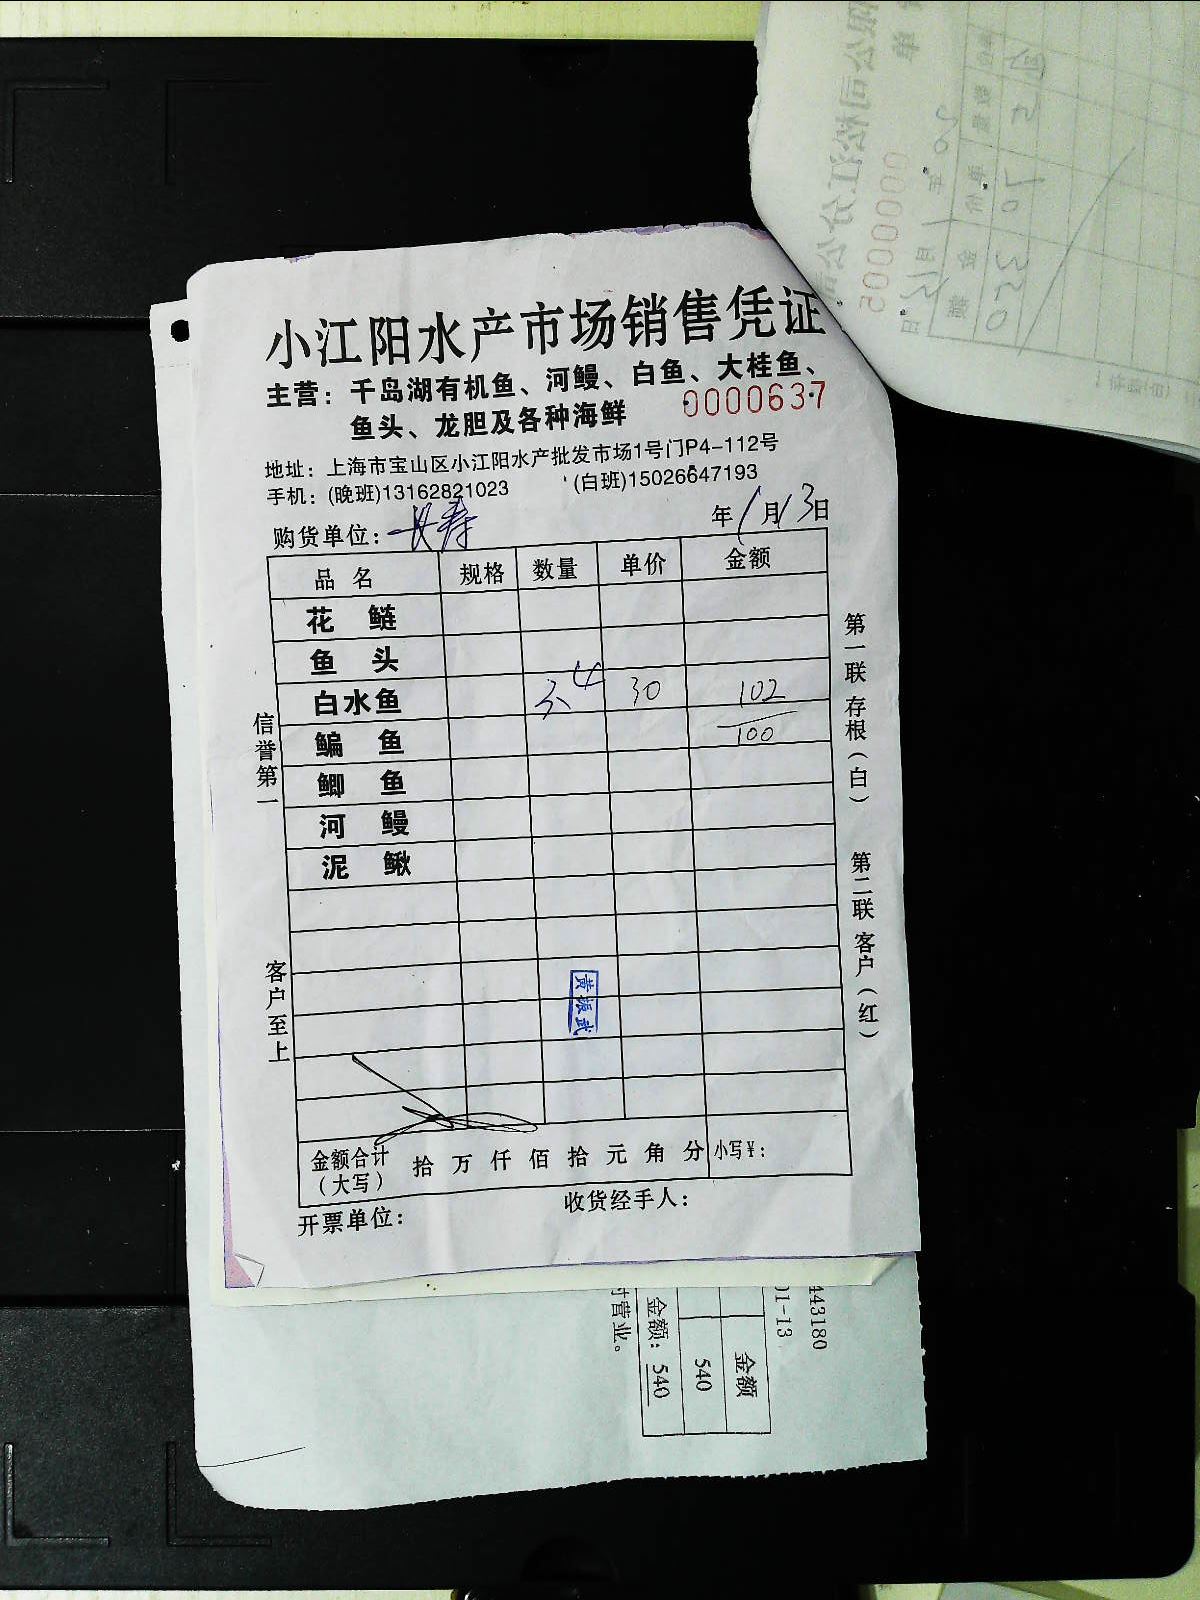 小江阳水产市场销售凭证
主营：千岛湖有机鱼、河鳗、白鱼、大桂鱼、
鱼头、龙胆及各种海鲜
0000637
地址：上海市宝山区小江阳水产批发市场1号门P4-112号
手机：(晚班)13162821023 (白班)15026647193
购货单位：长寿 年1月13日
品名 规格 数量 单价 金额
花鲢
鱼头
白水鱼 3.4 30 102
100
鳊鱼
鲫鱼
河鳗
泥鳅
信誉第一
客户至上
第一联 存根（白）
第二联 客户（红）
金额合计（大写） 拾 万 仟 佰 拾 元 角 分 小写¥：
开票单位： 收货经手人：
443180
01-13
金额
540
金额：540
时营业。
0000005